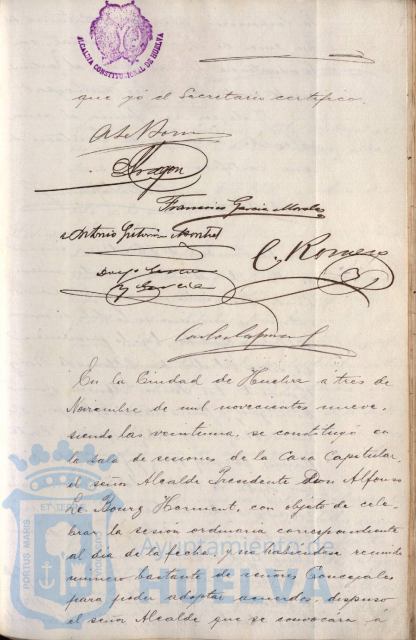 ALCALDIA CONSTITUCIONAL DE HUELVA
que yó el Secretario certifico.
Aragon
Francisco Garcia Morales
Antonio
C. Romero
Diego
y Garcia
En la Ciudad de Huelva a tres de
Noviembre de mil novecientos nueve,
siendo las veintiuna, se constituyó en
la sala de sesiones de la Casa Capitular,
el señor Alcalde Presidente Don Alfonso
Le Bourg Horment, con objeto de cele-
brar la sesión ordinaria correspondiente
al dia de la fecha, y no habiendose reunido
número bastante de señores Concejales
para poder adoptar acuerdos, dispuso
el señor Alcalde que se convocára á
PORTUS MARIS
ET TERRAE
Ayuntamiento de
HUELVA